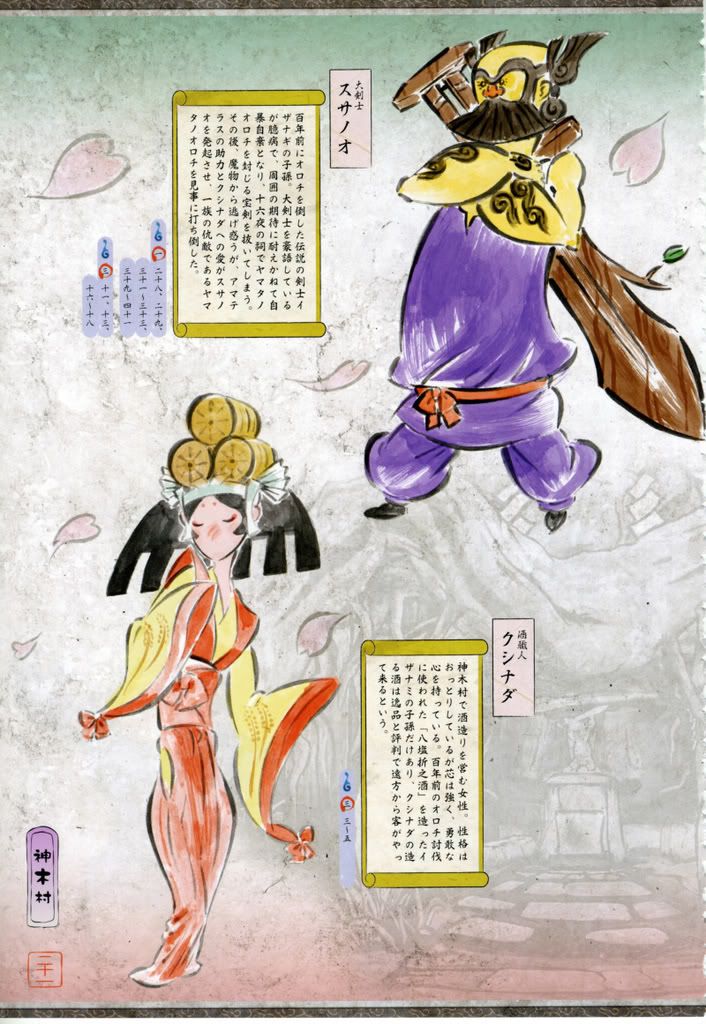 大剣士
スサノオ
百年前にオロチを倒した伝説の剣士イ
ザナギの子孫。大剣士を豪語している
が臆病で、周囲の期待に耐えかねて自
暴自棄となり、十六夜の祠でヤマタノ
オロチを封じる宝剣を抜いてしまう。
その後、魔物から逃げ惑うが、アマテ
ラスの助力とクシナダへの愛がスサノ
オを発起させ、一族の仇敵であるヤマ
タノオロチを見事に打ち倒した。
一 二十八、二十九、
三十一～三十三、
三十九～四十一
三 十一、十三、
十六～十八
酒職人
クシナダ
神木村で酒造りを営む女性。性格は
おっとりしているが芯は強く、勇敢な
心を持っている。百年前のオロチ討伐
に使われた「八塩折之酒」を造ったイ
ザナミの子孫だけあり、クシナダの造
る酒は逸品と評判で遠方から客がやっ
て来るという。
三 三～五
神木村
二十一